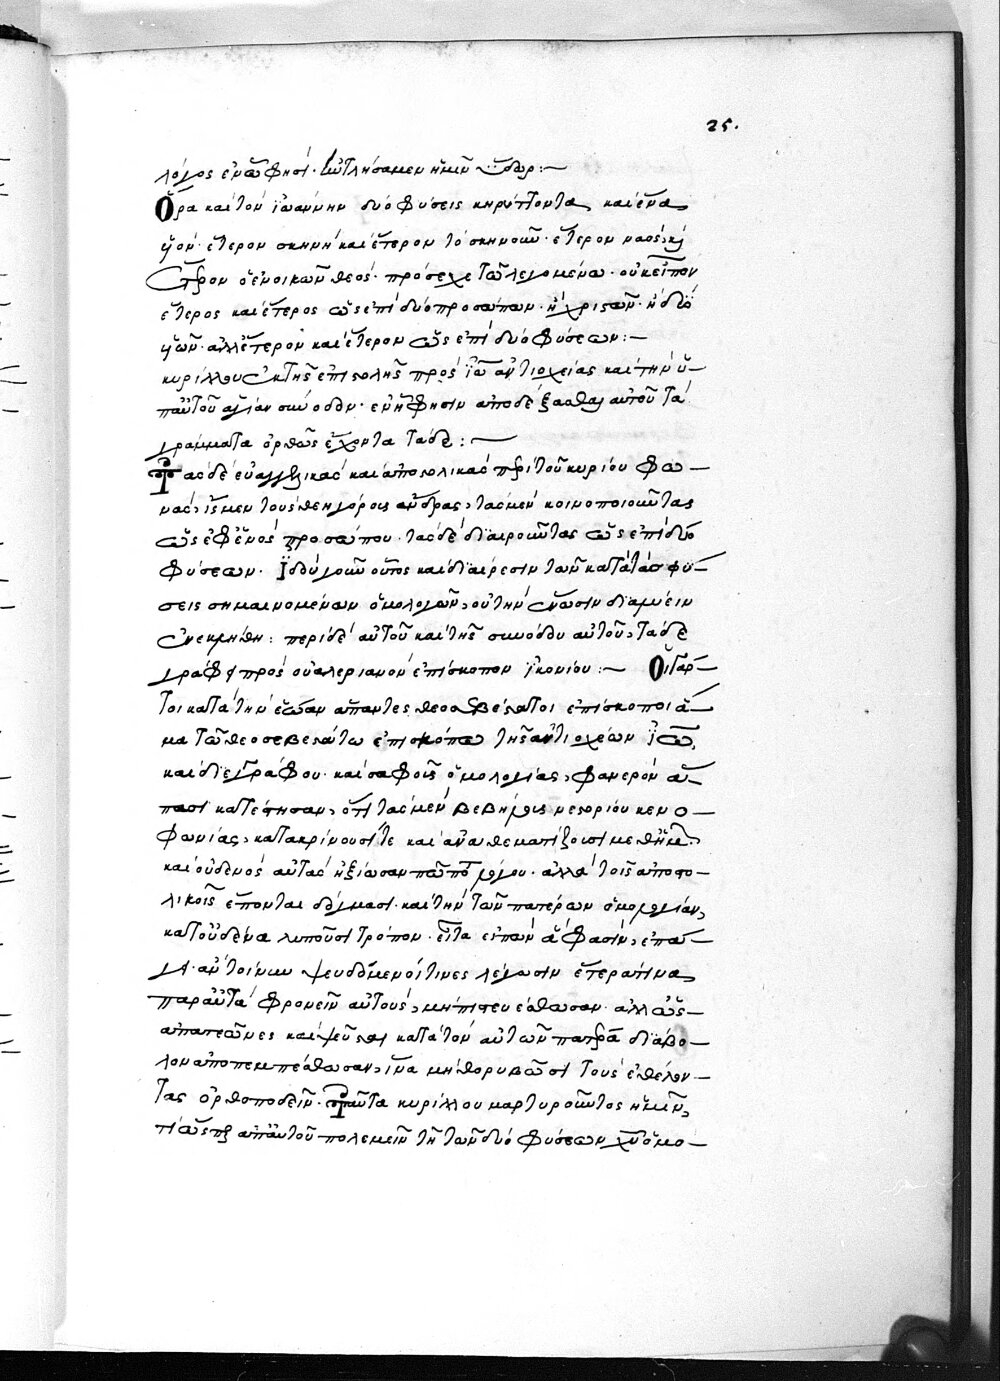 25.
λόγος ἐνῷ φησί· ἐσκήνωσεν ἡμῖν
Ὅρα καὶ τὸν ἰωάννην δύο φύσεις κηρύττοντα, καὶ ἕνα
υἱόν· ἕτερον σκηνὴ καὶ ἕτερον τὸ σκηνοῦν· ἕτερον ναὸς, καὶ
ἕτερον ὁ ἐνοικῶν θεός· πρόσεχε τῶ λεγομένω· οὐκ εἶπον
ἕτερος καὶ ἕτερος ὡς ἐπὶ δύο προσώπων· ἢ χριστῶν· ἢ δύο
υἱῶν· ἀλλ' ἕτερον καὶ ἕτερον ὡς ἐπὶ δύο φύσεων:—
κυρίλλου ἐκ τῆς ἐπιστολῆς πρὸς ἰω ἀντιοχείας καὶ τὴν ὑ—
π' αὐτοῦ ἁγίαν σύνοδον· ἐν ᾗ φησιν ἀποδέξασθαι αὐτοῦ τὰ
γράμματα ὀρθῶς ἔχοντα τάδε:—
Τὰς δὲ εὐαγγελικὰς καὶ ἀποστολικὰς περὶ τοῦ κυρίου φω—
νὰς, ἴσμεν τοὺς θεηγόρους ἄνδρας, τὰς μὲν κοινοποιοῦντας
ὡς ἐφ' ἑνὸς προσώπου· τὰς δὲ διαιροῦντας ὡς ἐπὶ δύο
φύσεων· ἰδοὺ γοῦν οὗτος καὶ διαίρεσιν τῶν κατὰ τὰς φύ—
σεις σημαινομένων ὁμολογῶν, οὐ τὴν ἕνωσιν διαιρεῖν
ἐνεκρίθη: περὶ δὲ αὐτοῦ καὶ τῆς συνόδου αὐτοῦ, τάδε
γράφει πρὸς οὐαλεριανὸν ἐπίσκοπον ἰκονίου:— Οἱ γὰρ—
τοι κατὰ τὴν ἑώαν ἅπαντες θεοσεβέστατοι ἐπίσκοποι ἅ—
μα τῶ θεοσεβεστάτω ἐπισκόπω τῆς ἀντιοχέων ἰω,
καὶ δι' ἐγγράφου· καὶ σαφοῦς ὁμολογίας, φανερὸν ἅ—
πασι κατέστησαν, ὅτι τὰς μὲν βεβήλους νεστορίου κενο—
φωνίας, κατακρίνουσί τε καὶ ἀναθεματίζουσι μεθ' ἡμῶν,
καὶ οὐδενὸς αὐτὰς ἠξίωσαν πώποτε λόγου· ἀλλὰ τοῖς ἀποστο—
λικοῖς ἕπονται δόγμασι· καὶ τὴν τῶν πατέρων ὁμολογίαν,
κατ' οὐδένα λυποῦσι τρόπον· εἶτα εἰπὼν ἃ φασὶν, ἐπά—
γει· ἂν τοίνυν ψευδόμενοί τινες λέγωσιν ἕτερά τινα,
παρὰ ταῦτα φρονεῖν αὐτοὺς, μὴ πιστευέσθωσαν· ἀλλ' ὡς—
ἀπατεῶνες καὶ ψεῦσται κατὰ τὸν αὐτῶν πατέρα διάβο—
λον ἀποπεμπέσθωσαν, ἵνα μὴ θορυβῶσι τοὺς ἐθέλον—
τας ὀρθοποδεῖν· Ταῦτα κυρίλλου μαρτυροῦντος ἡμῖν,
τί ὡς περ ἀπ' αὐτοῦ πολεμεῖν τῇ τῶν δύο φύσεων χῦ ὁμο—